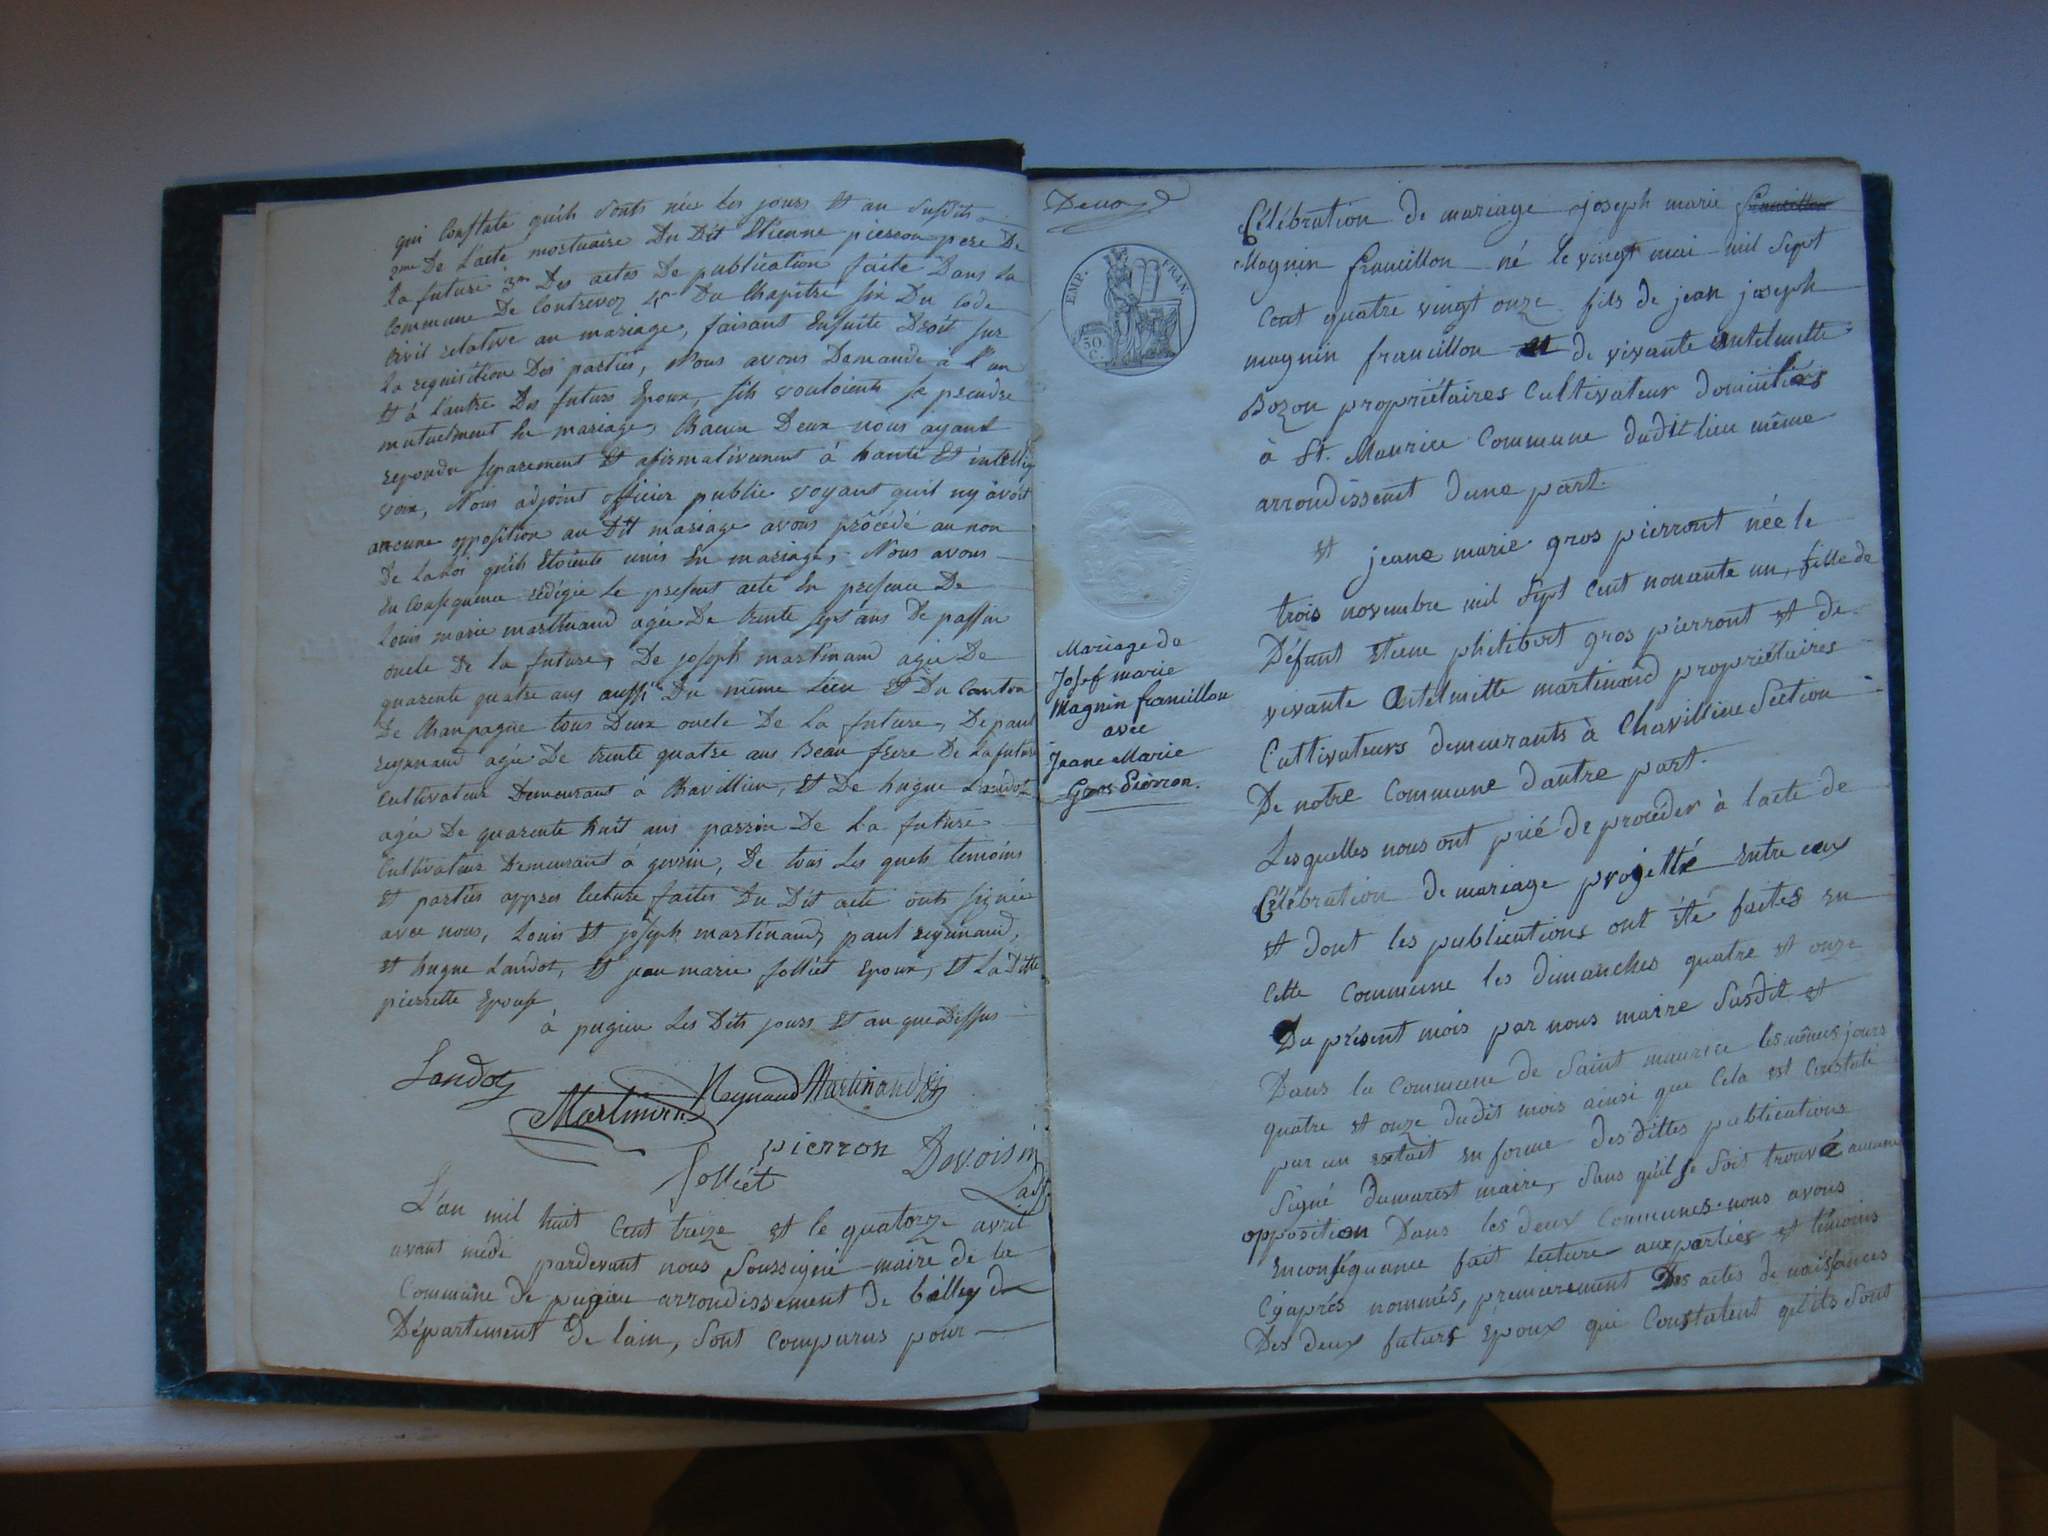 qui Constate quils sonts née les jours et an susdits
2me De Lacte mortuaire Du Dit Etienne pierron pere De
la future 3me Des actes De publication faite Dans la
Commune De Contrevoz 4e Du Chapitre six Du Code
Civil relative au mariage, faisant Ensuite Droit sur
La requisition Des parties, Nous avons Demandé à l'un
Et à L'autre Des futurs Epoux, sils vouloients se prendre
mutuelment En mariage, Chacun Deux nous ayant
repondu séparement Et afirmativement à haute Et intelligi
voix, Nous adjoint officier public voyant quil ny avoit
aucune opposition au Dit mariage avons procédé au nom
De La Loi quils Etoients unis En mariage, Nous avons
En Consequence rédigée Le present acte En presence De
Louis marie martinand agée De trente sept ans De passin
oncle De la future, De joseph martinand agée De
quarente quatre ans aussi Du même Lieu Et Du Canton
De Champagne tous Deux oncle De La future, De paul
reynaud agée De trente quatre ans Beau frere De La future
Cultivateur Demeurant à Chavillieu, Et De hugue Landoz
agée De quarente huit ans parrin De La future
Cultivateur Demeurant à gevrin, De tous Les quels temoins
Et parties appres lecture faites Du Dit acte onts signée
avec nous, Louis Et joseph martinand, paul reynaud,
Et hugue Landoz, Et jean marie jolliet Epoux, Et La ditte
pierrette Epouse
à pugieu Les Dits jours Et an que Dessus
Landoz
Martinand Reynaud Martinand
pierron Devoisin
Jolliet
L'an mil huit Cent treize et le quatorze avril
avant midi pardevant nous Soussigné maire de la
Commune de pugieu arrondissement de belley
Département de lain, sont comparus pour
EMP. FRAN.
50
C.
Mariage de
Josef marie
Magnin francillon
avec
Jeane Marie
Gros Pierron.
Célébration de mariage joseph marie francillon
Magnin francillon né le vingt mai mil sept
Cent quatre vingt onze fils de jean joseph
magnin francillon et de vivante Antelmette
Bozon propriétaires Cultivateur domiciliés
à St. Maurice Commune dudit lieu même
arrondissement dune part.
et jeane marie gros pierront née le
trois novembre mil sept cent nonante un, fille de
Défunt etiene philibert gros pierront et de
vivante Antelmitte martinand propriétaires
Cultivateurs demeurants à Chavillieu Section
De notre Commune dautre part.
Lesquelles nous ont prié de procéder à lacte de
Célébration de mariage projetté entre eux
et dont les publications ont été faites en
Cette Commune les dimanches quatre et onze
Du présent mois par nous maire Susdit et
Dans la Commune de Saint maurice les mêmes jours
quatre et onze dudit mois ainsi que Cela est Constaté
par un extait en forme desdittes publications
Signé dumarest maire, Sans quil se soit trouvé aucune
opposition Dans les deux Communes. nous avons
Enconséquence fait lecture aux parties et témoins
Cyaprés nommés, premierement Des actes de naissances
Des deux futurs Epoux qui Constatent qu'ils sont